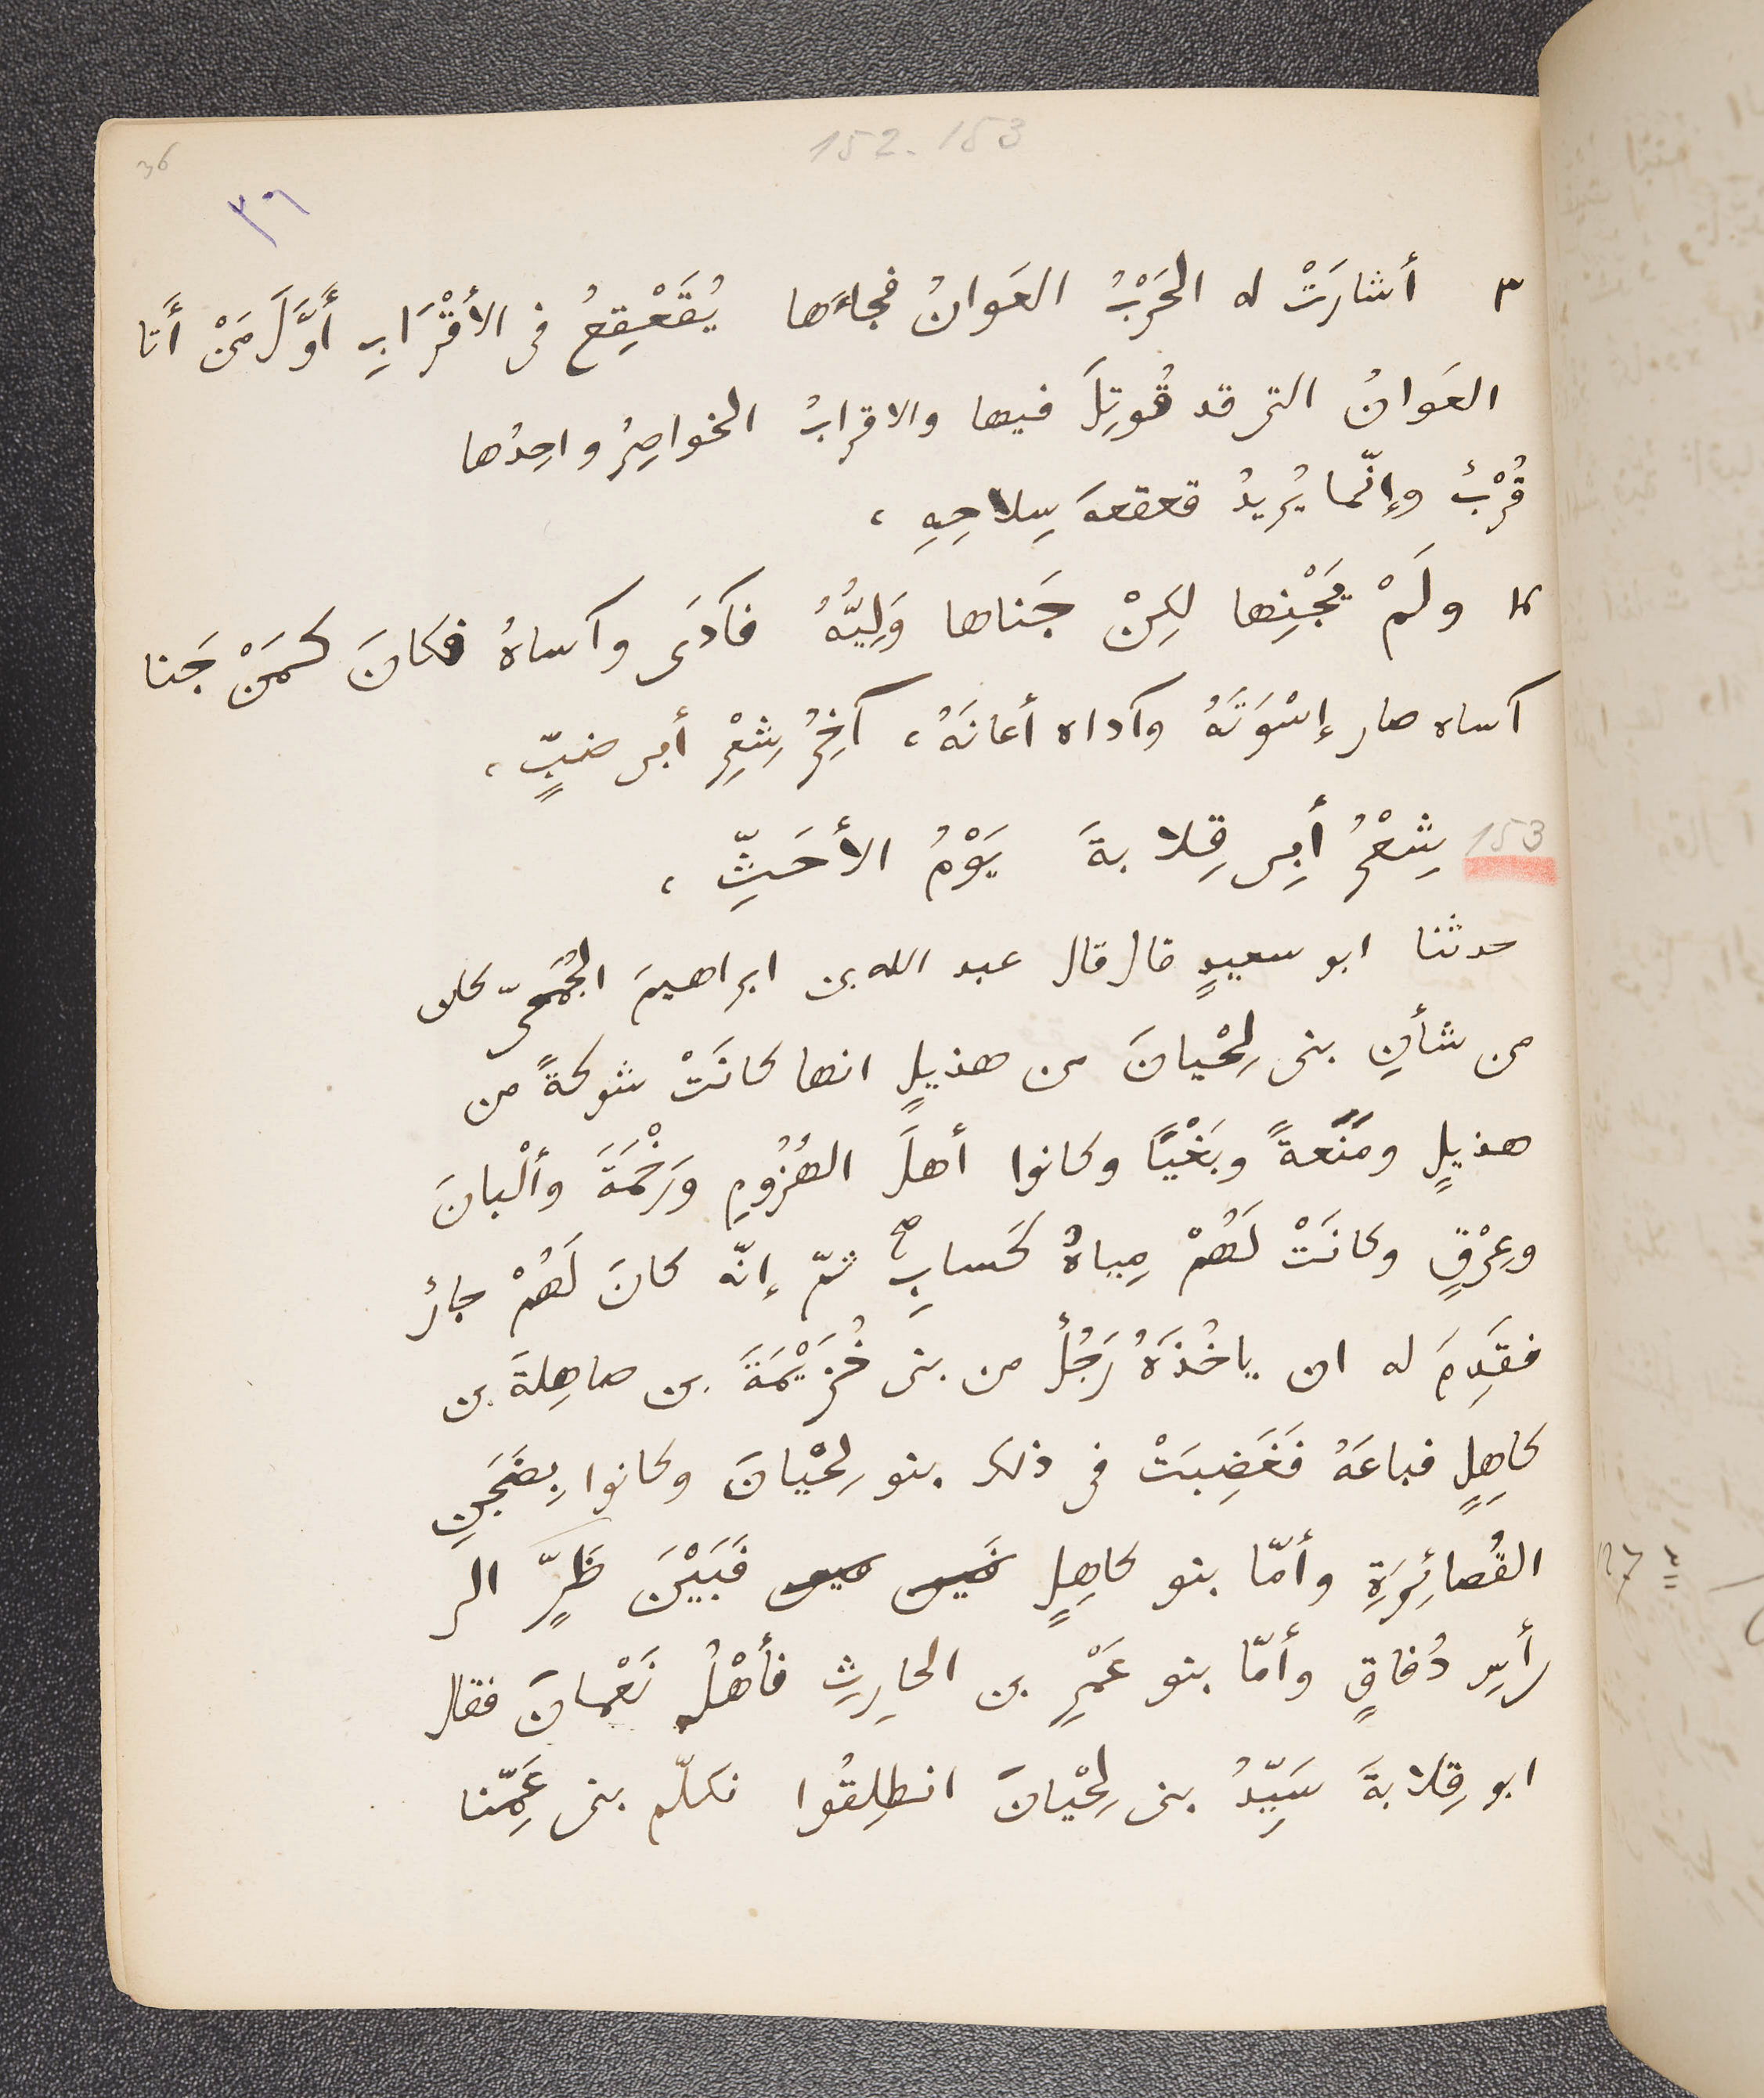 152.153
36
٣٦
٣ أشارَتْ له الحَرْبُ العَوانُ فجاءَها يُقَعْقِعُ فى الأَقْرَابِ أَوَّلَ مَنْ أَتا
العَوانُ التى قد قُوتِلَ فيها والاقرابُ الخواصِرُ واحِدُها
قُرْبٌ وإنّما يُريدُ قعقعهَ سِلاحِهِ ،
٤ ولَمْ يَجْنِها لكِنْ جَناها وَلِيُّهُ فآدَى وآساهُ فكانَ كمَنْ جَنا
آساه صار إسْوَتَهُ وآداه أعانَهُ ، آخِرُ شِعْرِ أبى ضبٍّ ،
153 شِعْرُ أَبِى قِلابةَ يَوْمُ الأَحَثِّ ،
حدثنا ابو سعيدٍ قال قال عبد الله بن ابراهيمَ الجُمَحىّ كان
من شأنِ بنى لِحْيانَ من هذيلٍ انها كانَتْ شوكةً من
هذيلٍ ومَنَعةً وبَغْيًا وكانوا أهلَ الهُزُومِ ورَخْمَةَ وألْبانَ
وعِرْقٍ وكانَتْ لَهُمْ مِياهُ كَسابِ ثمّ إنّه كانَ لَهُمْ جارٌ
فقَدِمَ له ان ياخُذَهُ رَجُلٌ من بنى خُزَيْمَةَ بن صاهِلةَ بن
كاهِلٍ فباعَهُ فَغَضِبَتْ فى ذلك بنو لِحْيانَ وكانوا بِضَجَنِ
القُصائِرَةِ وأمّا بنو كاهِلٍ فَبَيْنَ ظَرٍّ الى
رأسِ دُفاقٍ وأمّا بنو عَمْرِو بن الحارِثِ فأهْلُ نَعْمانَ فقال
ابو قِلابةَ سَيِّدُ بنى لِحْيانَ انطلِقُوا نكلّم بنى عَمِّنا